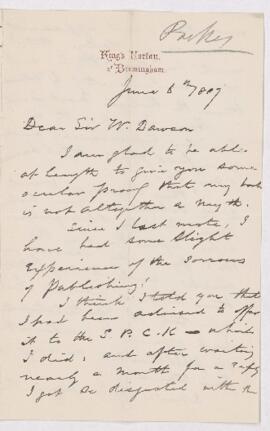 Parkes
King's Norton,
nr Birmingham.
June 8th 1889
Dear Sir W. Dawson
I am glad to be able
at length to give you some
ocular proof that my book
is not altogether a myth.
Since I last wrote, I
have had some slight
Experience of the sorrows
of Publishing!
I think I told you that
I had been advised to offer
it to the S.P.C.K – which
I did; and after waiting
nearly a month for a reply
I got so disgusted with the